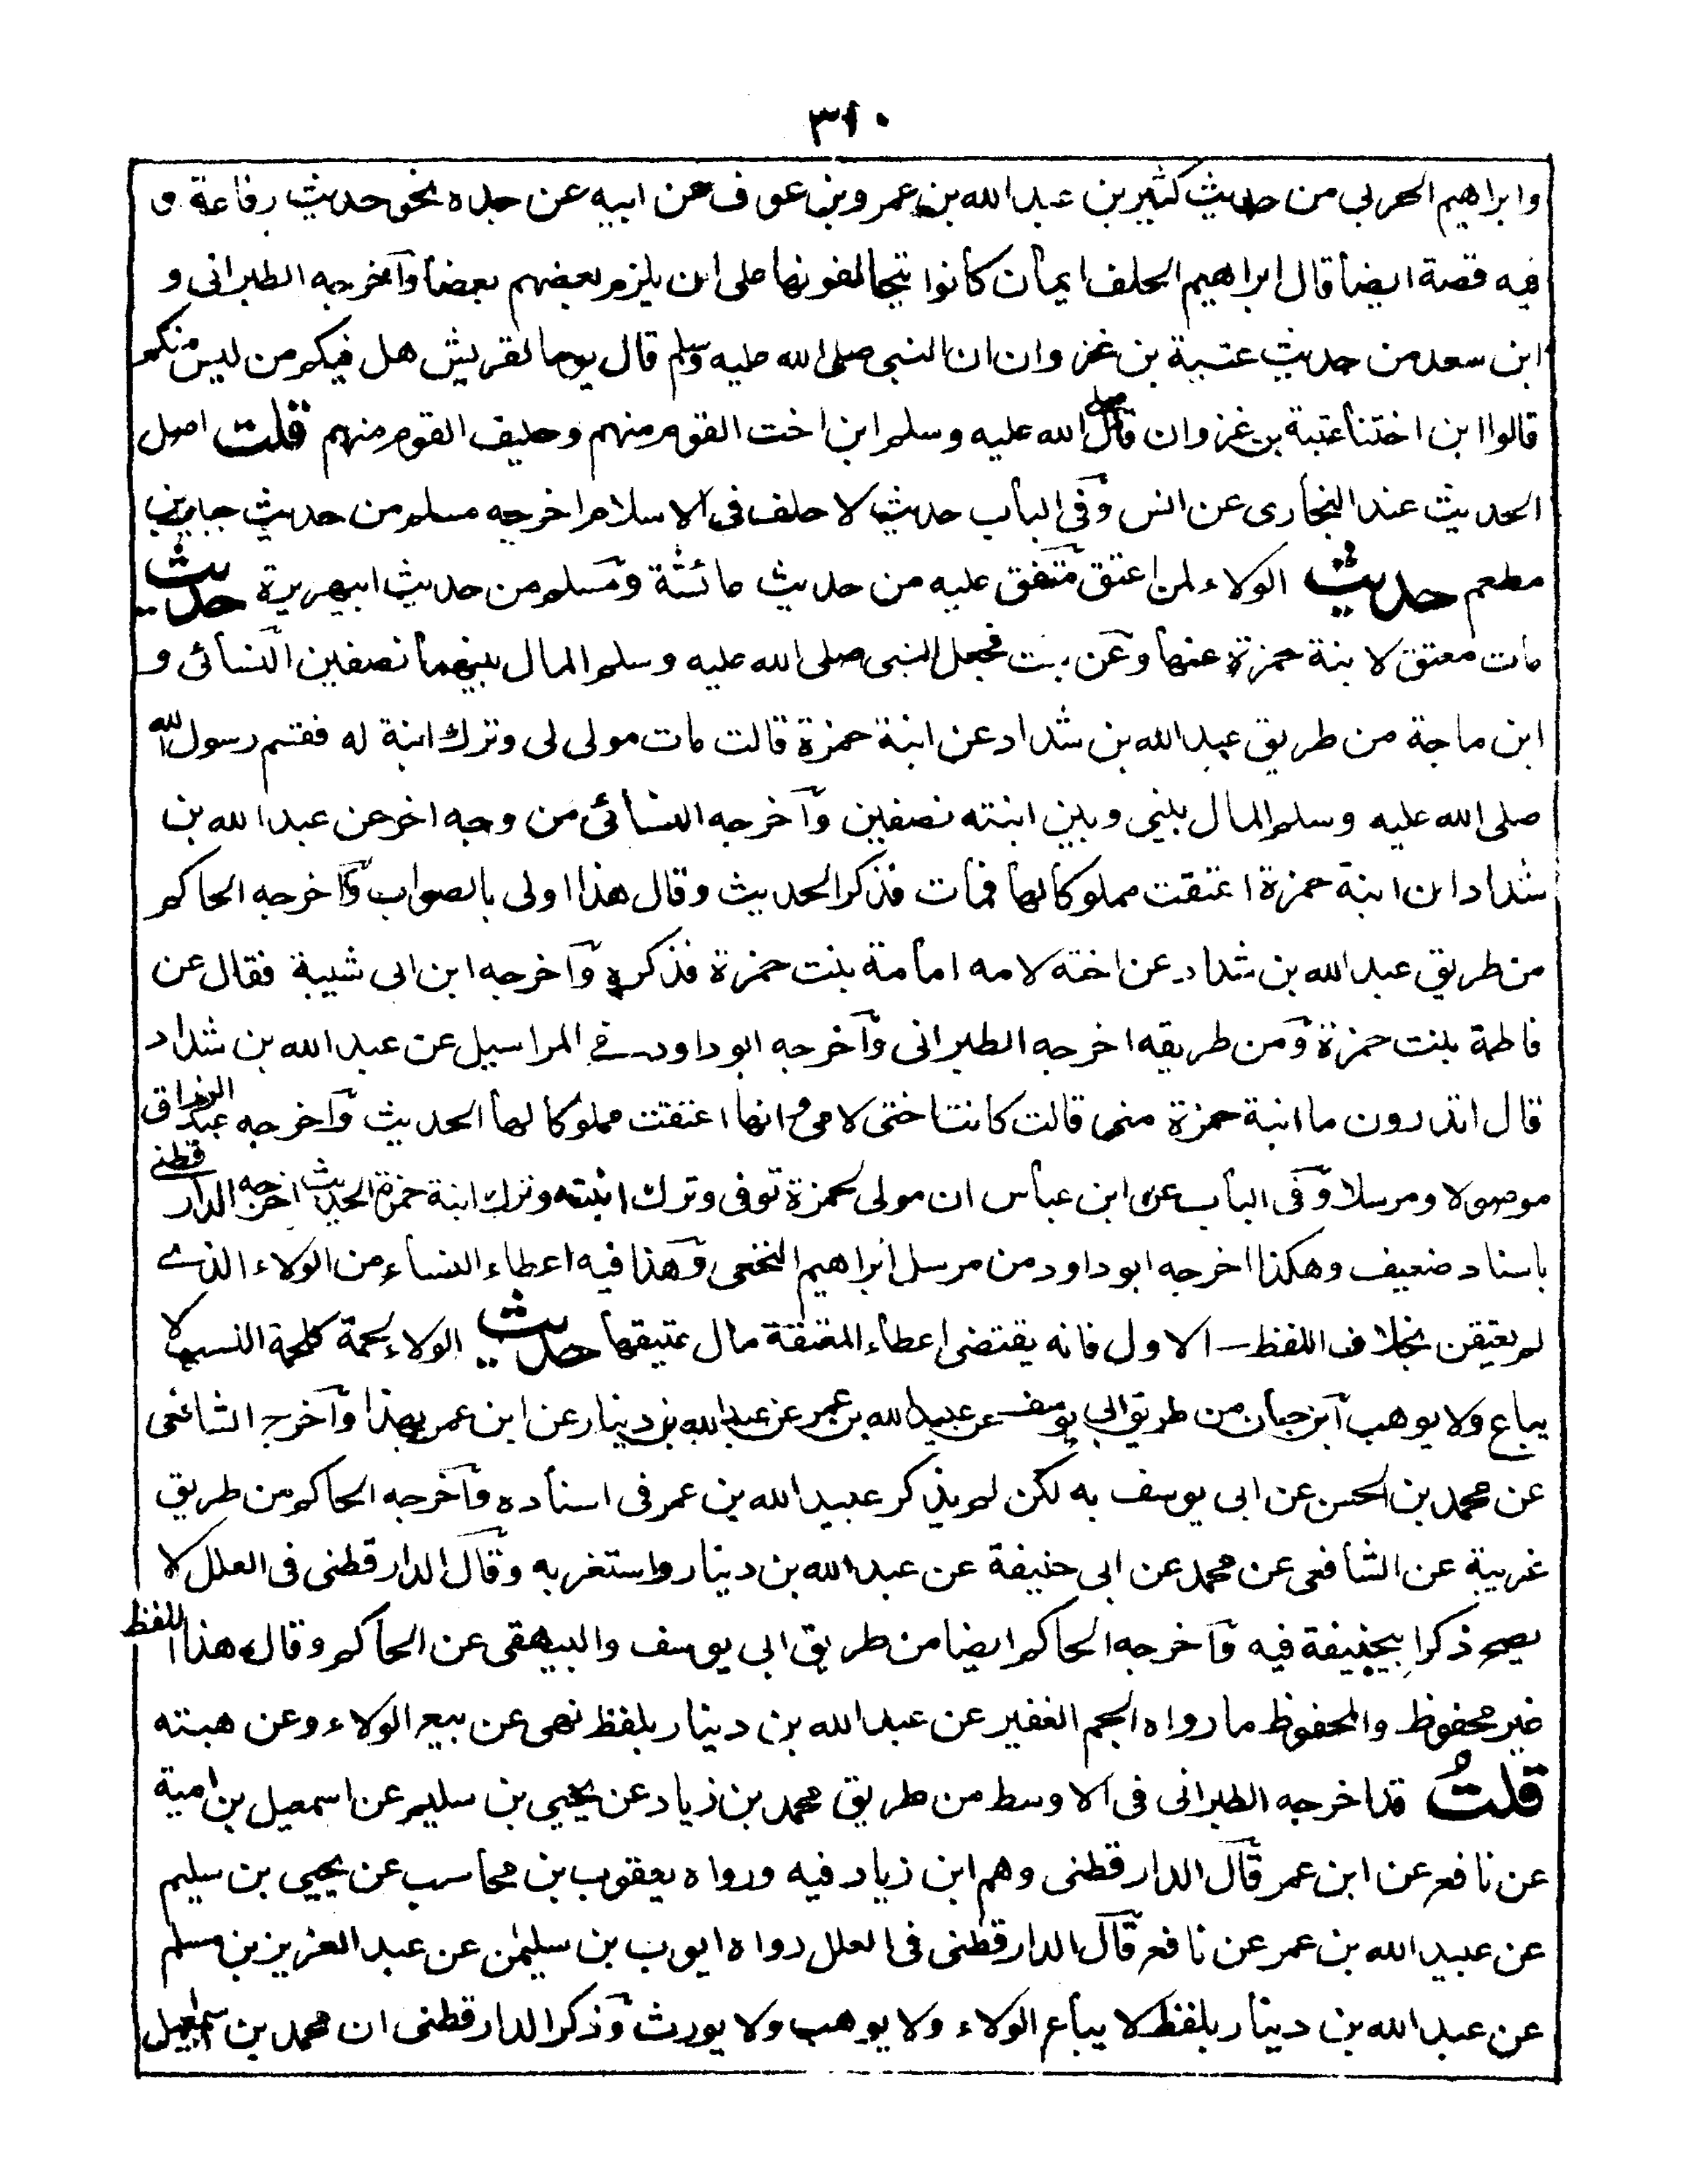 ٣١٠
وابراهيم الحربي من حديث كثير بن عبد الله بن عمرو بن عوف عن ابيه عن جده نحو حديث رفاعة و
فيه قصة ايضا قال ابراهيم الحلف ايمان كانوا يتحالفونها على ان يلزم بعضهم بعضا وآخرجه الطبرانى و
ابن سعد من حديث عتبة بن غزوان ان النبى صلى الله عليه وسلم قال يوما لقريش هل فيكم من ليس منكم
قالوا ابن اختنا عتبة بن غزوان قال صلى الله عليه وسلم ابن اخت القوم منهم وحليف القوم منهم قلت اصل
الحديث عند البخارى عن انس وفى الباب حديث لا حلف فى الاسلام اخرجه مسلم من حديث جبير بن
مطعم حديث الولاء لمن اعتق متفق عليه من حديث عائشة ومسلم من حديث ابيهريرة حديث
مات معتق لابنة حمزة عنها وعن بنت فجعل النبى صلى الله عليه وسلم المال بينهما نصفين النسائى و
ابن ماجة من طريق عبد الله بن شداد عن ابنة حمزة قالت مات مولى لى وترك ابنة له فقسم رسول الله
صلى الله عليه وسلم المال بينى وبين ابنته نصفين وآخرجه النسائى من وجه اخر عن عبد الله بن
شداد ان ابنة حمزة اعتقت مملوكا لها فمات فذكر الحديث وقال هذا اولى بالصواب وآخرجه الحاكم
من طريق عبد الله بن شداد عن اخته لامه امامة بنت حمزة فذكره وآخرجه ابن ابى شيبة فقال عن
فاطمة بنت حمزة ومن طريقه اخرجه الطبرانى وآخرجه ابو داود فے المراسيل عن عبد الله بن شداد
قال اتدرون ما ابنة حمزة منى قالت كانت اختى لامى انها اعتقت مملوكا لها الحديث وآخرجه عبد الرزاق
موصولا ومرسلا وفى الباب عن ابن عباس ان مولى لحمزة توفى وترك ابنته وترك ابنة حمزة الحديث اخرجه الدارقطنے
باسناد ضعيف وهكذا اخرجه ابو داود من مرسل ابراهيم النخعى وهذا فيه اعطاء النساء من الولاء الذے
لم يعتقن بخلاف اللفظ الاول فانه يقتضى اعطاء المعتقة مال عتيقها حديث الولاء لحمة كلحمة النسب لا
يباع ولا يوهب ابن حبان من طريق ابى يوسف عن عبيد الله بن عمر عن عبد الله بن دينار عن ابن عمر بهذا وآخرجه الشافعى
عن محمد بن الحسن عن ابى يوسف به لكن لم يذكر عبيد الله بن عمر فى اسناده وآخرجه الحاكم من طريق
غريبة عن الشافعى عن محمد عن ابى حنيفة عن عبد الله بن دينار واستغربه وقال الدارقطنى فى العلل لا
يصح ذكر ابيحنيفة فيه وآخرجه الحاكم ايضا من طريق ابى يوسف والبيهقى عن الحاكم وقال هذا اللفظ
غير محفوظ والمحفوظ ما رواه الجم الغفير عن عبد الله بن دينار بلفظ نهى عن بيع الولاء وعن هبته
قلتُ قد اخرجه الطبرانى فى الاوسط من طريق محمد بن زياد عن يحيى بن سليم عن اسمعيل بن امية
عن نافع عن ابن عمر قال الدارقطنى وهم ابن زياد فيه ورواه يعقوب بن محاسب عن يحيى بن سليم
عن عبيد الله بن عمر عن نافع قال الدارقطنى فى العلل رواه ايوب بن سليمٰن عن عبد العزيز بن مسلم
عن عبد الله بن دينار بلفظ لا يباع الولاء ولا يوهب ولا يورث وذكر الدارقطنى ان محمد بن اسمٰعيل